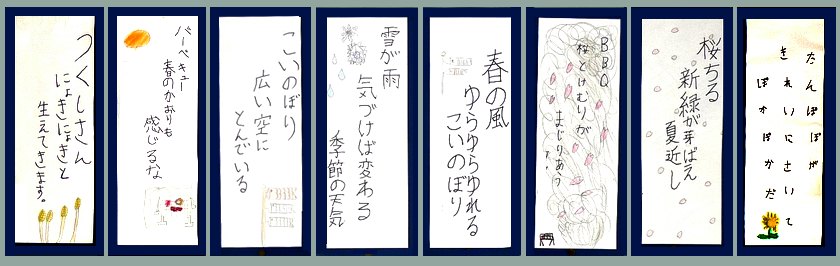 たんぽぽが
きれいにさいて
ぽかぽかだ
桜ちる
新緑が芽ばえ
夏近し
BBQ
桜とけむりが
まじりあう
春の風
ゆらゆらゆれる
こいのぼり
雪が雨
気づけば変わる
季節の天気
こいのぼり
広い空に
とんでいる
バーベキュー
春のかおりも
感じるな
つくしさん
にょきにょきと
生えてきます。